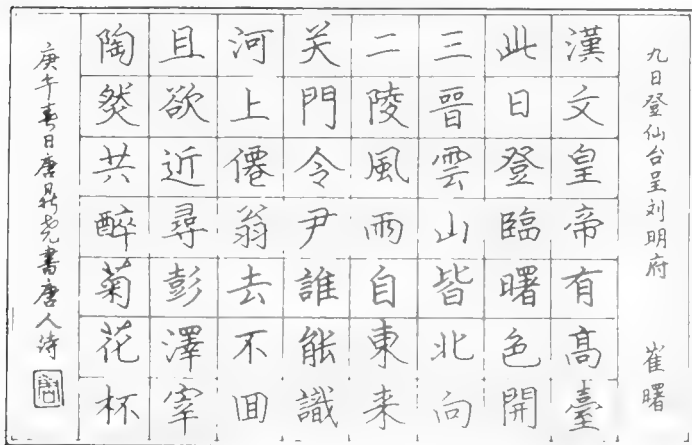 九日登仙台呈刘明府 崔曙
漢文皇帝有高臺
此日登臨曙色開
三晉雲山皆北向
二陵風雨自東来
关門令尹誰能識
河上僊翁去不回
且欲近尋彭澤宰
陶然共醉菊花杯
庚午春日唐鼎尧書唐人诗